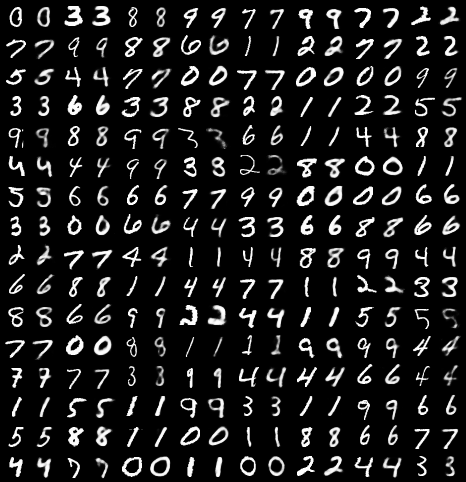 0 0 3 3 8 8 9 9 7 7 9 9 7 7 2 2
7 7 9 9 8 8 6 6 1 1 2 2 7 7 2 2
5 5 4 4 7 7 0 0 7 7 0 0 0 0 9 9
3 3 6 6 3 3 8 8 2 2 1 1 2 2 5 5
9 9 8 8 9 9 3 3 6 6 1 1 4 4 8 8
4 4 4 4 9 9 3 3 2 2 8 8 0 0 1 1
5 5 6 6 6 6 7 7 9 9 0 0 0 0 6 6
3 3 0 0 6 6 4 4 3 3 6 6 8 8 6 6
2 2 7 7 4 4 1 1 4 4 8 8 9 9 4 4
6 6 8 8 1 1 4 4 7 7 1 1 2 2 3 3
8 8 6 6 9 9 2 2 4 4 1 1 5 5 5 5
7 7 0 0 8 8 1 1 1 1 9 9 9 9 4 4
7 7 7 7 3 3 9 9 4 4 4 4 6 6 4 4
1 1 5 5 1 1 9 9 3 3 1 1 9 9 6 6
5 5 8 8 1 1 0 0 1 1 8 8 6 6 7 7
4 4 7 7 0 0 1 1 0 0 2 2 4 4 3 3